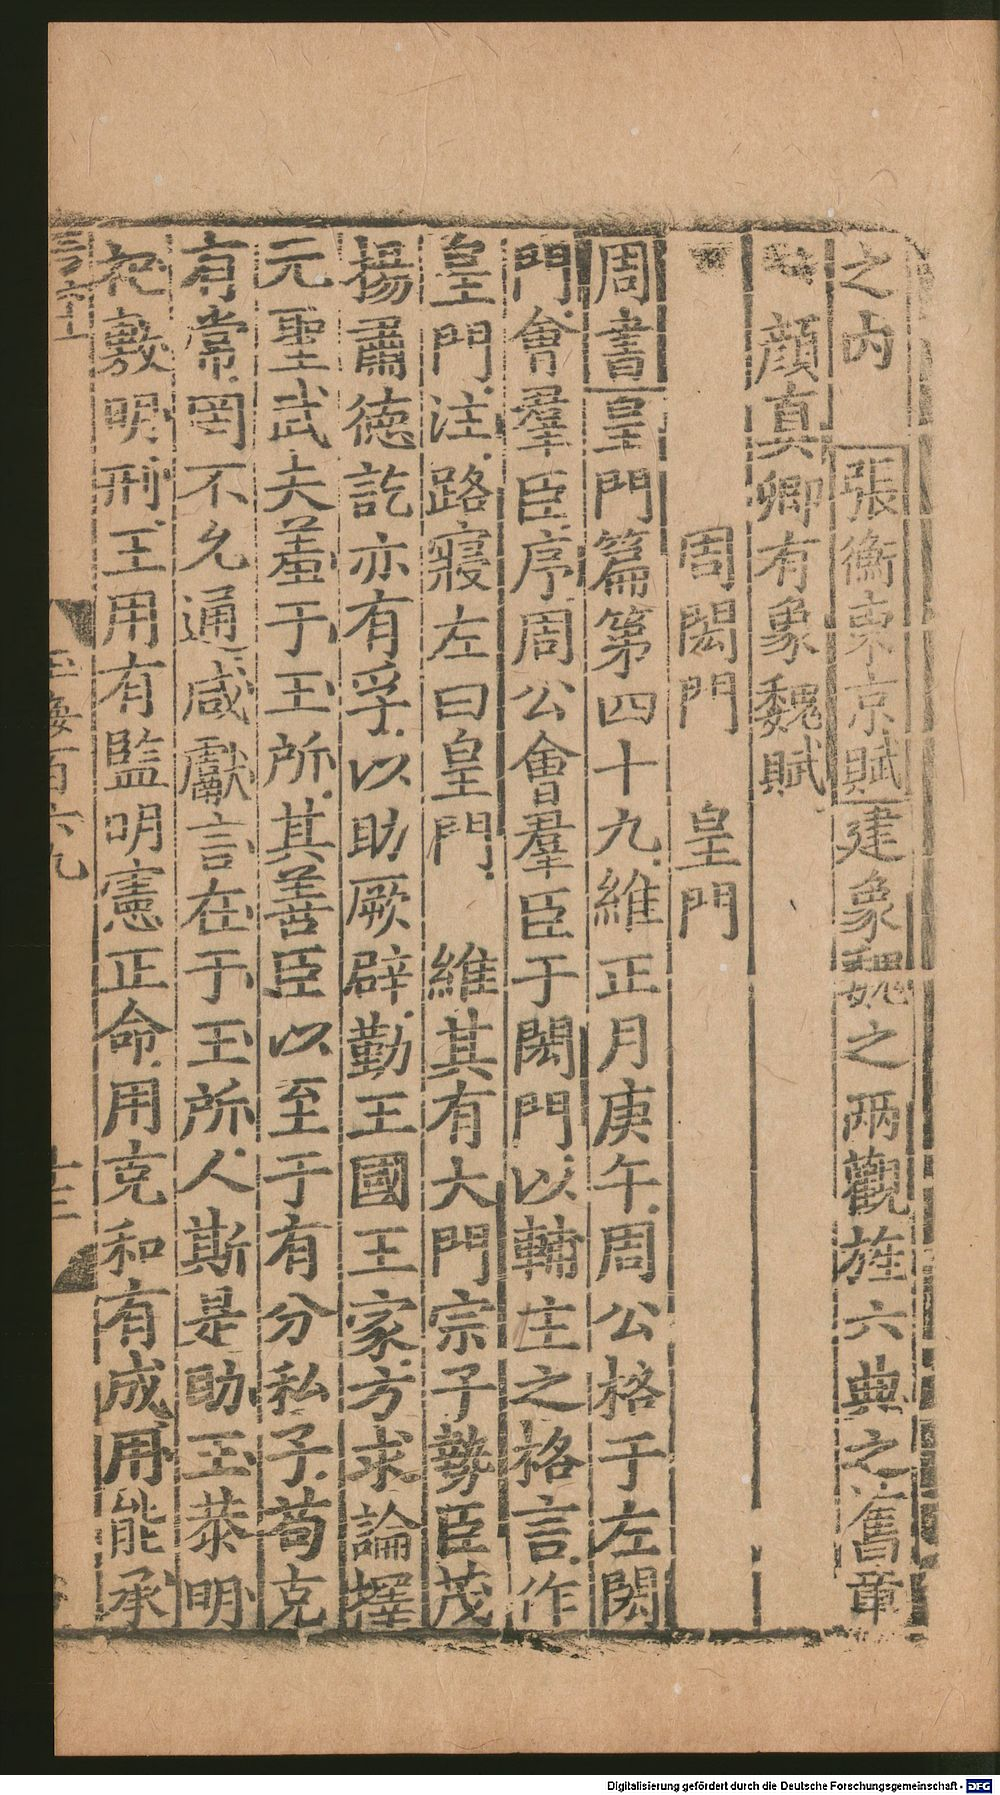 之内　張衡東京賦建象魏之兩觀旌六典之舊章
顔真卿有象魏賦
周閎門　皇門
周書皇門篇第四十九維正月庚午周公格于左閎
門會羣臣序周公會羣臣于閎門以輔主之格言作
皇門注路寢左曰皇門　維其有大門宗子勢臣茂
揚肅德訖亦有孚以助厥辟勤王國王家方求論擇
元聖武夫羞于王所其善臣以至于有分私子苟克
有常罔不允通咸獻言在于王所人斯是助王恭明
祀敷明刑王用有監明憲正命用克和有成用能承
玉海百六九
十三
Digitalisierung gefördert durch die Deutsche Forschungsgemeinschaft - DFG